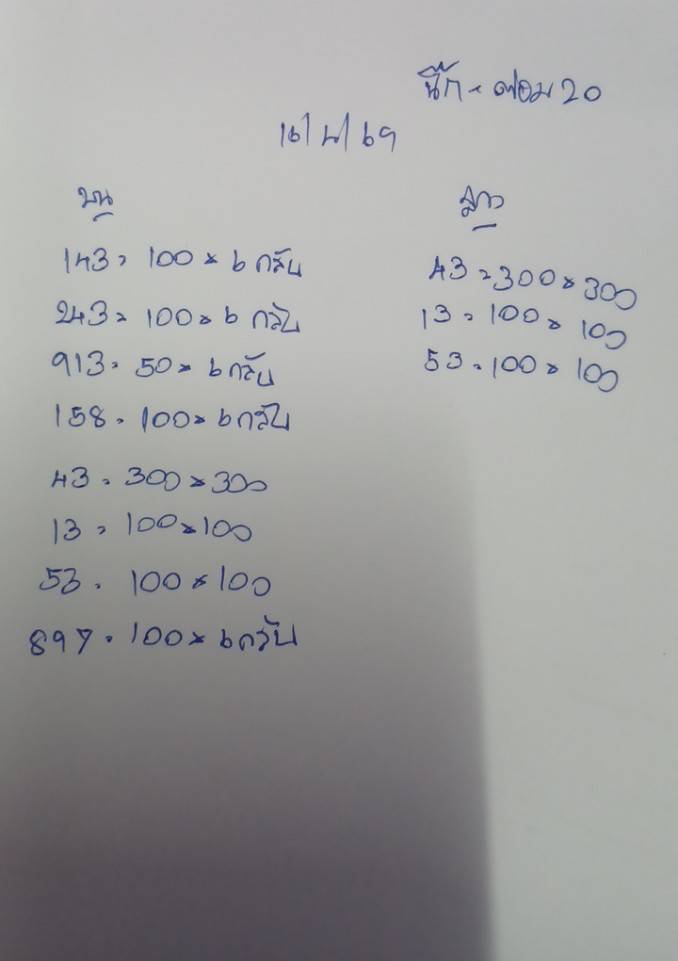 นิ๊ก - ตอม 20
16/4/69
บน
143 = 100 × 6 กลับ
243 = 100 × 6 กลับ
913 = 50 × 6 กลับ
158 = 100 × 6 กลับ
43 = 300 × 300
13 = 100 × 100
53 = 100 × 100
897 = 100 × 6 กลับ
ล่าง
43 = 300 × 300
13 = 100 × 100
53 = 100 × 100